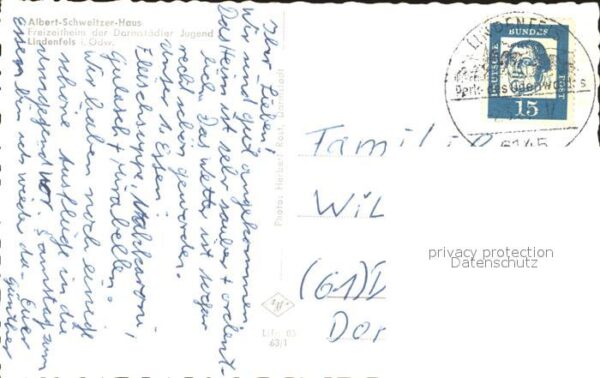 Albert-Schweitzer-Haus
Freizeitheim der Darmstädter Jugend
Lindenfels i. Odw.
Ihr Lieben!
Wir sind gut angekommen
Das Heim ist sehr sauber + ordent-
lich. Das Wetter ist sogar
recht schön geworden.
Unser 1. Essen:
Fleischsuppe, Makkaroni,
Gulasch + Mirabellen.
Wir haben noch einige
schöne Ausflüge in die
Umgegend vor. Samstag zum
Essen bin ich wieder da. Euer
Günther
Photo: Herbert Rost, Darmstadt
L 03
63/1
LINDENFELS
Perle des Odenwaldes
6145
DEUTSCHE
BUNDES
POST
15
Familie
Wil
(61)
Dar
privacy protection
Datenschutz